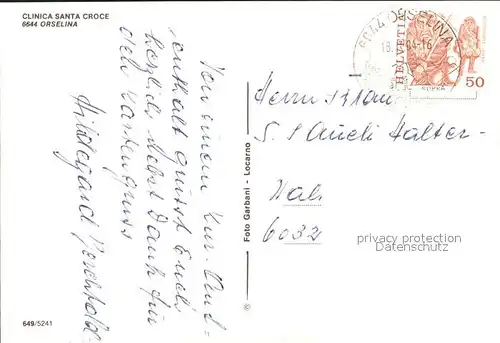 CLINICA SANTA CROCE
6644 ORSELINA
Von einem Kur-Auf-
enthalt grüsst Euch
herzlich, nebst Dank für
den Kartengruss
Hildegard
649/5241
Foto Garbani - Locarno
©
6644 ORSELINA
18. 84-16
HELVETIA
50
Herrn + Frau
Halter-
6032
privacy protection
watermark